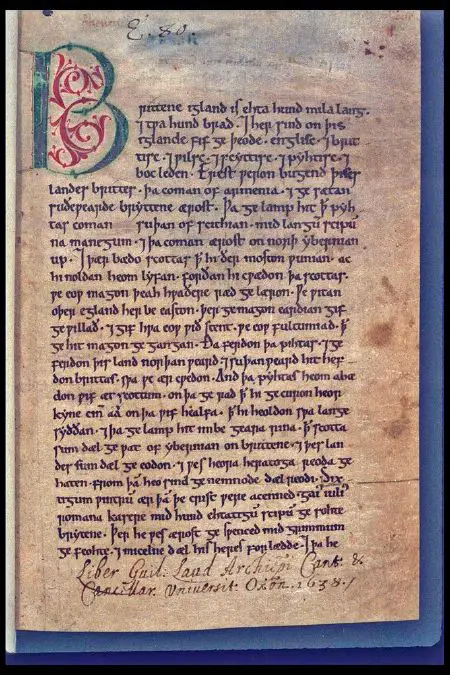 E. 80.
Brittene igland is ehta hund mila lang.
⁊ tƿa hund brad. ⁊ her sind on þis
iglande fif ge þeode. englisc. ⁊ brit
tisc. ⁊ ƿilsc. ⁊ scyttisc. ⁊ pyhtisc. ⁊
boc leden. Erest ƿeron bugend þises
landes brittes. þa coman of armenia. ⁊ ge sætan
suðeƿearde bryttene ærost. Þa ge lamp hit ꝥ pyh
tas coman suþan of scithian. mid langū scipū
na manegum. ⁊ þa coman ærost on norþ ybernian
up. ⁊ þær bædo scottas ꝥ hi ðer moston ƿunian. ac
hi noldan heom lyfan. forðan hi cƿædon þa scottas.
ƿe eoƿ magon þeah hƿaðere ræd ge læron. Ƿe ƿitan
oþer egland her be easton. þer ge magon eardian gif
ge ƿillað. ⁊ gif hƿa eoƿ ƿið stent. ƿe eoƿ fultumiað. ꝥ
ge hit magon ge gangan. Ða ferdon þa pihtas. ⁊ ge
ferdon þis land norþan ƿeard. ⁊ suþan ƿeard hit hef
don brittas. sƿa ƿe ær cƿedon. And þa pyhtas heom abæ
don ƿif æt scottum. on þa ge rad ꝥ hi ge curon heora
kyne cinn aa on þa ƿif healfa. ꝥ hi heoldon sƿa lange
syððan. ⁊ þa ge lamp hit imbe geara rina. ꝥ scotta
sum dæl ge ƿat of ybernian on brittene. ⁊ þes lan
des sum dæl ge eodon. ⁊ ƿes heora heratoga. reoda ge
haten. From þā heo sind ge nemnode dæl reodi. Six
tigum ƿintrū ær þā þe crist ƿere acenned. gaiꝰ iuliꝰ
romana kasere mid hund ehtatigū scipū ge sohte
brytene. Þer he ƿes ærost ge sƿenced mid grimmum
ge feohte. ⁊ micelne dæl his heres forlædde. ⁊ þa he
Liber Guil: Laud Archiepi Cant. &
Cancellar. Universit. Oxon. 1638.